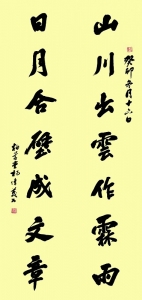 山川出雲作霖雨
癸卯年六月十六日
日月合璧成文章